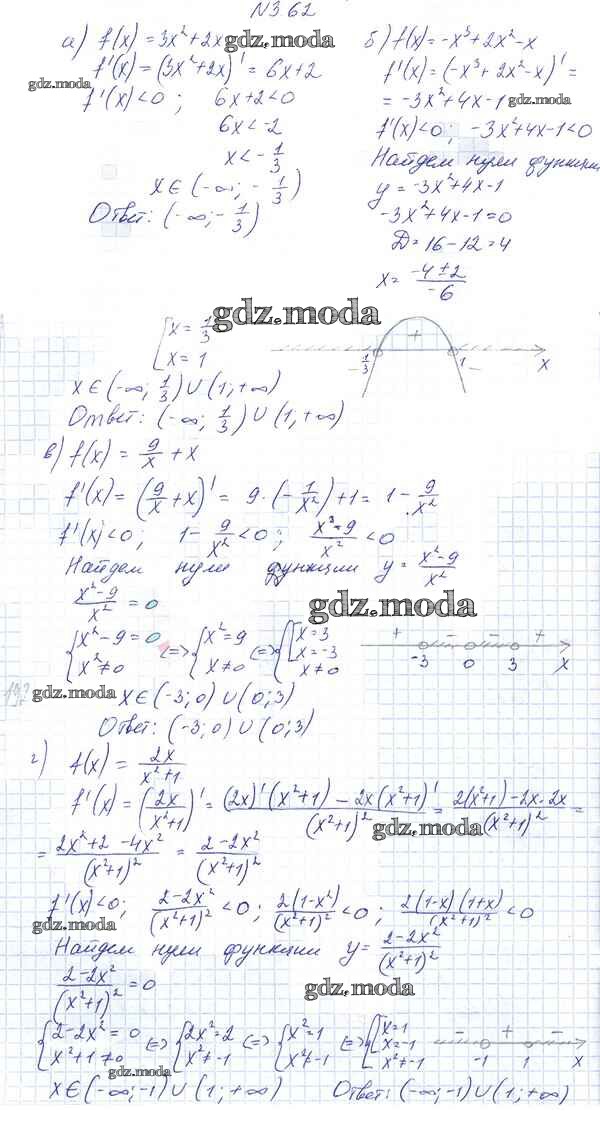 N3.62
а) f(x) = 3x²+2x
f'(x) = (3x²+2x)' = 6x+2
f'(x)<0 ; 6x+2<0
6x<-2
x<-1/3
x∈(-∞; -1/3)
Ответ: (-∞; -1/3)
б) f(x) = -x³+2x²-x
f'(x) = (-x³+2x²-x)' =
= -3x²+4x-1
f'(x)<0; -3x²+4x-1<0
Найдем нули функции
y = -3x²+4x-1
-3x²+4x-1=0
D = 16-12 = 4
x = (-4±2)/-6
gdz.moda
gdz.moda
gdz.moda
gdz.moda
[x = 1/3
x = 1
+
- 1/3 1 - x
x∈(-∞; 1/3)∪(1; +∞)
Ответ: (-∞; 1/3)∪(1; +∞)
в) f(x) = 9/x + x
f'(x) = (9/x + x)' = 9·(-1/x²)+1 = 1 - 9/x²
f'(x)<0; 1 - 9/x² <0 ; (x²-9)/x² <0
Найдем нули функции y = (x²-9)/x²
(x²-9)/x² = 0
gdz.moda
{x²-9=0 x²≠0 <=> {x²=9 x≠0 <=> {[x=3 x=-3 x≠0
+ - - +
-3 0 3 x
gdz.moda
x∈(-3; 0)∪(0; 3)
Ответ: (-3; 0)∪(0; 3)
г) f(x) = 2x/(x²+1)
f'(x) = (2x/(x²+1))' = ((2x)'(x²+1) - 2x(x²+1)')/(x²+1)² = (2(x²+1)-2x·2x)/(x²+1)² =
gdz.moda
= (2x²+2-4x²)/(x²+1)² = (2-2x²)/(x²+1)²
f'(x)<0; (2-2x²)/(x²+1)² <0 ; 2(1-x²)/(x²+1)² <0 ; 2(1-x)(1+x)/(x²+1)² <0
gdz.moda
Найдем нули функции y = (2-2x²)/(x²+1)²
(2-2x²)/(x²+1)² = 0
gdz.moda
{2-2x²=0 x²+1≠0 <=> {2x²=2 x²≠-1 <=> {x²=1 x²≠-1 <=> {[x=1 x=-1 x²≠-1
- + -
-1 1 x
gdz.moda
x∈(-∞; -1)∪(1; +∞) Ответ: (-∞; -1)∪(1; +∞)